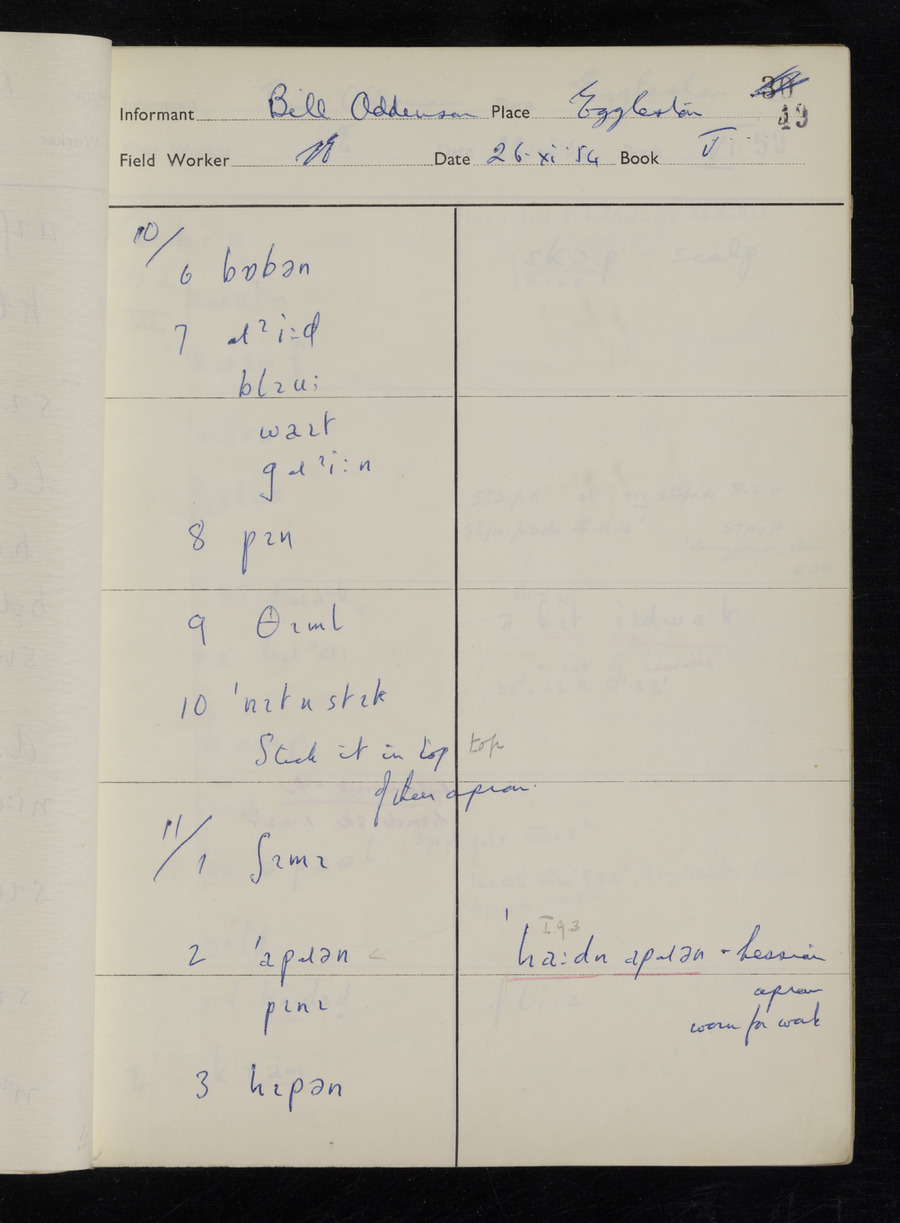 30
49
Informant Bill Oddenson Place Eggleston
Field Worker Date 26·xi·54 Book V
10/
6 bɒbən
7 ɹᵊi:d
blɪu:
waɪt
gɹᵊi:n
8 pɪn
9 θɪml
10 ˈnɪtnstɪk
Stuck it in top top
of their apron.
11/
1 ʃɪmɪ
2 ˈapɹən
I.9.3
ˈha:dn apɹən - hessian
apron
worn for work
pɪnɪ
3 hɪpən